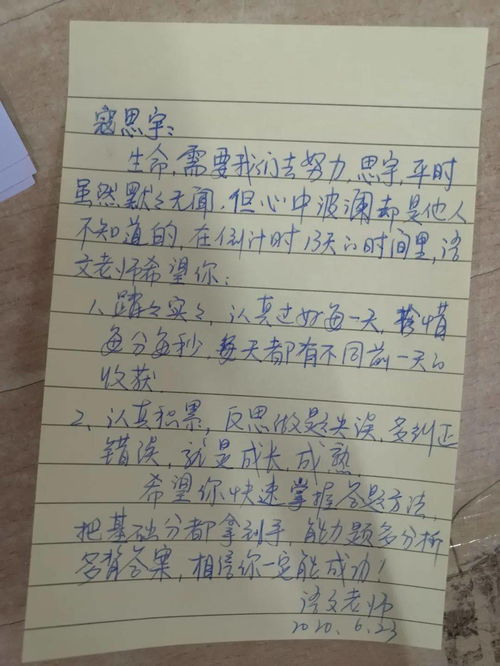 寇思宇：
生命，需要我们去努力，思宇，平时
虽然默々无闻，但心中波澜却是他人
不知道的，在倒计时13天的时间里，语
文老师希望你：
1、踏々实々，认真过好每一天，珍惜
每分每秒，每天都有不同前一天的
收获
2、认真积累，反思做题失误，多纠正
错误，就是成长，成熟
希望你快速掌握答题方法，
把基础分都拿到手，能力题多分析
多背答案，相信你一定能成功！
语文老师
2020.6.23